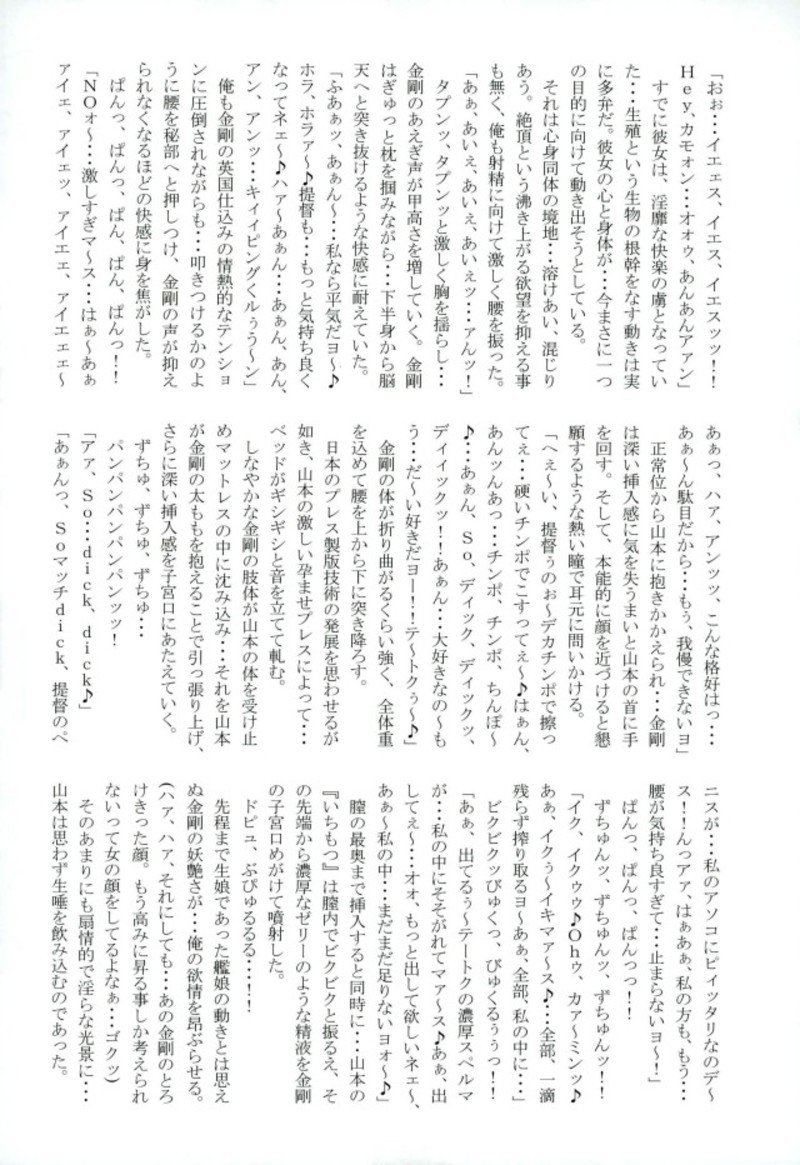 「おぉ・・・イエェス、イエス、イエスッツ！！
Hey、カモォン・・・オオゥ、あんあんアァン」
　すでに彼女は、淫靡な快楽の虜となってい
た・・・生殖という生物の根幹をなす動きは実
に多弁だ。彼女の心と身体が・・・今まさに一つ
の目的に向けて動き出そうとしている。
　それは心身同体の境地・・・溶けあい、混じり
あう。絶頂という沸き上がる欲望を抑える事
も無く、俺も射精に向けて激しく腰を振った。
「あぁ、あいぇ、あいぇ、あいぇッ・・・ァんッ！」
　タプンッ、タプンッと激しく胸を揺らし・・・
金剛のあえぎ声が甲高さを増していく。金剛
はぎゅっと枕を掴みながら・・・下半身から脳
天へと突き抜けるような快感に耐えていた。
「ふあぁッ、あぁん～・・・私なら平気だヨ～♪
ホラ、ホラァ～♪提督も・・・もっと気持ち良く
なってネェ～♪ハァ～あぁん・・・あぁん、あん、
アン、アンッ・・・キィイピングくルぅう～ン」
　俺も金剛の英国仕込みの情熱的なテンショ
ンに圧倒されながらも・・・叩きつけるかのよ
うに腰を秘部へと押しつけ、金剛の声が抑え
られなくなるほどの快感に身を焦がした。
　ぱんっ、ぱんっ、ぱん、ぱん、ぱんっ！！
「NOォ～・・・激しすぎマ～ス・・・はぁ～あぁ
ァイェ、アイエッ、アイエェ、アイエェェ～
あぁっ、ハァ、アンッッ、こんな格好はっ・・・
あぁ～ん駄目だから・・・もぅ、我慢できないヨ」
　正常位から山本に抱きかかえられ・・・金剛
は深い挿入感に気を失うまいと山本の首に手
を回す。そして、本能的に顔を近づけると懇
願するような熱い瞳で耳元に問いかける。
「へぇ～い、提督ぅのぉ～デカチンポで擦っ
てぇ・・・硬いチンポでこすってぇ～♪はぁん、
あんッんあっ・・・チンポ、チンポ、ちんぽ～
♪・・・あぁん、So、ディック、ディックッ、
ディィイクッ！！あぁん・・・大好きなの～も
う・・・だ～い好きだヨー！！テ～トクぅ～♪」
　金剛の体が折り曲がるくらい強く、全体重
を込めて腰を上から下に突き降ろす。
　日本のプレス製版技術の発展を思わせるが
如き、山本の激しい孕ませプレスによって・・・
ベッドがギシギシと音を立てて軋む。
　しなやかな金剛の肢体が山本の体を受け止
めマットレスの中に沈み込み・・・それを山本
が金剛の太ももを抱えることで引っ張り上げ、
さらに深い挿入感を子宮口にあたえていく。
　ずちゅ、ずちゅ、ずちゅ・・・
　パンパンパンパンパンッッ！
「アァ、So・・・dick、dick♪」
「あぁんっ、Soマッチdick、提督のペ
ニスが・・・私のアソコにピィッタリなのデ～
ス！！んっアァ、はぁあぁ、私の方も、もう・・・
腰が気持ち良すぎて・・・止まらないヨ～！」
　ぱんっ、ぱんっ、ぱんっっ！！
　ずちゅんッ、ずちゅんッ、ずちゅんッ！！
「イク、イクゥゥ♪Ohゥ、カァ～ミンッ♪
あぁ、イクぅ～イキマァ～ス♪・・・全部、一滴
残らず搾り取るヨ～あぁ、全部、私の中に・・・」
　ビクビクッびゅくっ、びゅくるぅぅっ！！
「あぁ、出てるぅ～テートクの濃厚スペルマ
が・・・私の中にそそがれてマァ～ス♪あぁ、出
してぇ～・・・オオ、もっと出して欲しいネェ～、
あぁ～私の中・・・まだまだ足りないヨォ～♪」
　膣の最奥まで挿入すると同時に・・・山本の
『いちもつ』は膣内でビクビクと振るえ、そ
の先端から濃厚なゼリーのような精液を金剛
の子宮口めがけて噴射した。
　ドピュ、ぶぴゅるるる・・・！！
　先程まで生娘であった艦娘の動きとは思え
ぬ金剛の妖艶さが・・・俺の欲情を昂ぶらせる。
(ハァ、ハァ、それにしても・・・あの金剛のとろ
けきった顔。もう高みに昇る事しか考えられ
ないって女の顔をしてるよなぁ・・・ゴクッ)
　そのあまりにも扇情的で淫らな光景に・・・
山本は思わず生唾を飲み込むのであった。